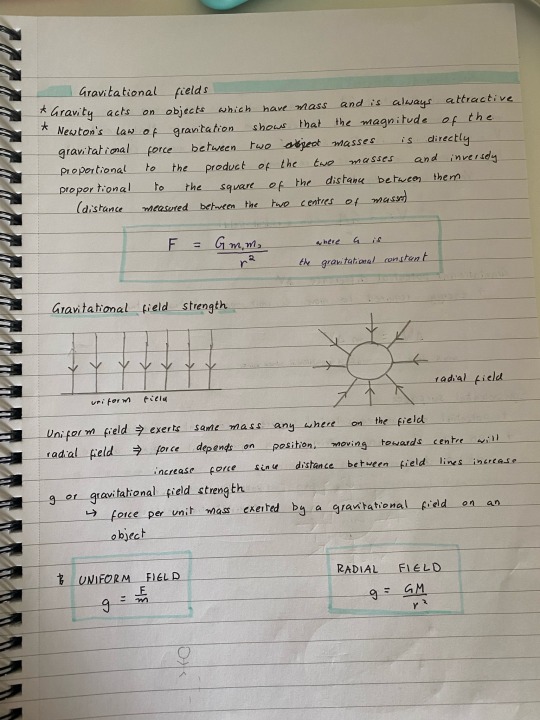 Gravitational fields
* Gravity acts on objects which have mass and is always attractive
* Newton's law of gravitation shows that the magnitude of the
gravitational force between two masses is directly
proportional to the product of the two masses and inversely
proportional to the square of the distance between them
(distance measured between the two centres of masses)
F = Gm₁m₂/r² where G is
the gravitational constant
Gravitational field strength
uniform field
radial field
Uniform field ⇒ exerts same mass any where on the field
radial field ⇒ force depends on position, moving towards centre will
increase force since distance between field lines increase
g or gravitational field strength
↳ force per unit mass exerted by a gravitational field on an
object
UNIFORM FIELD
g = F/m
RADIAL FIELD
g = GM/r²